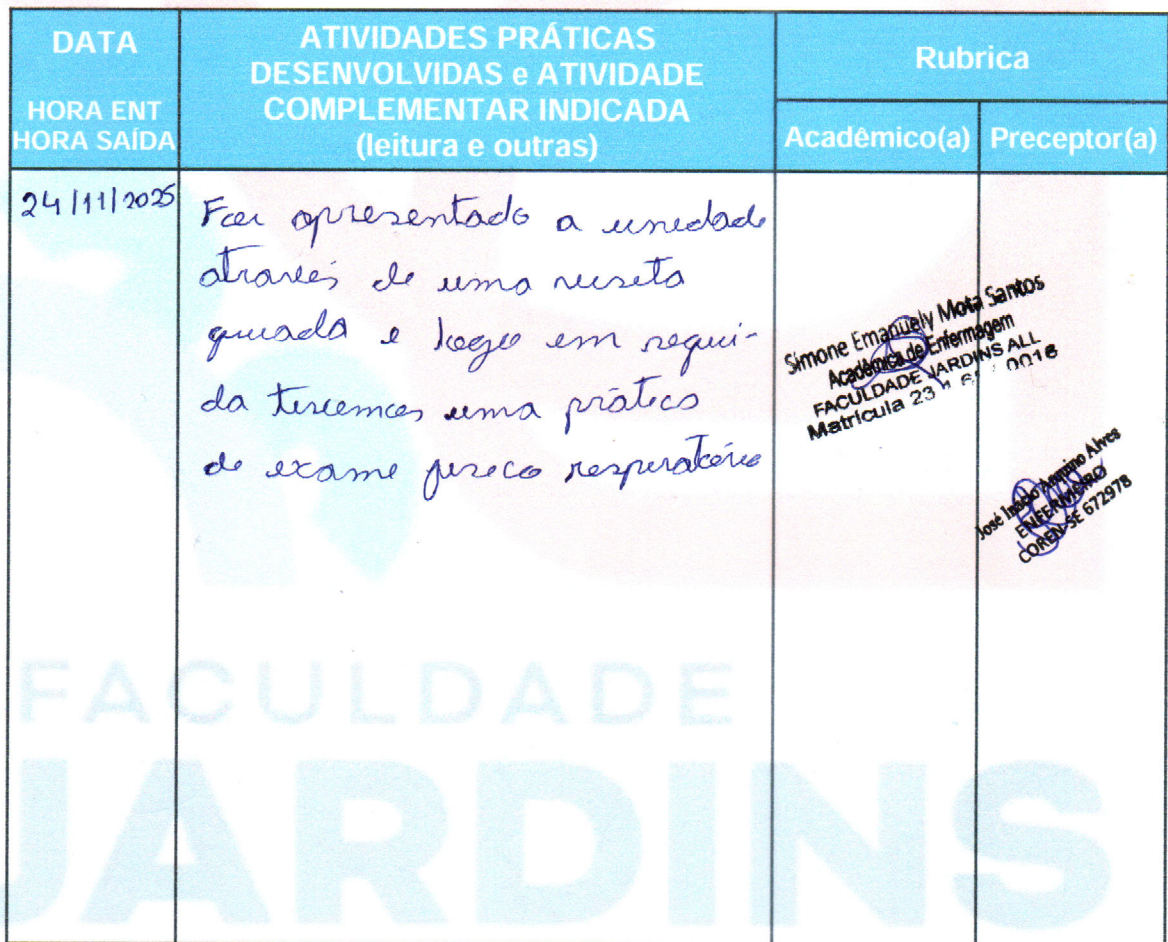 DATA
HORA ENT
HORA SAÍDA
ATIVIDADES PRÁTICAS
DESENVOLVIDAS e ATIVIDADE
COMPLEMENTAR INDICADA
(leitura e outras)
Rubrica
Acadêmico(a)
Preceptor(a)
24/11/2025
Foi apresentado a unidade
através de uma visita
guiada e logo em segui-
da tivemos uma prática
de exame físico respiratório
Simone Emanuely Mota Santos
Acadêmica de Enfermagem
FACULDADE JARDINS ALL
Matrícula 23 1 0016
José Inácio Alves
ENFERMEIRO
COREN-SE 672978
FACULDADE
JARDINS